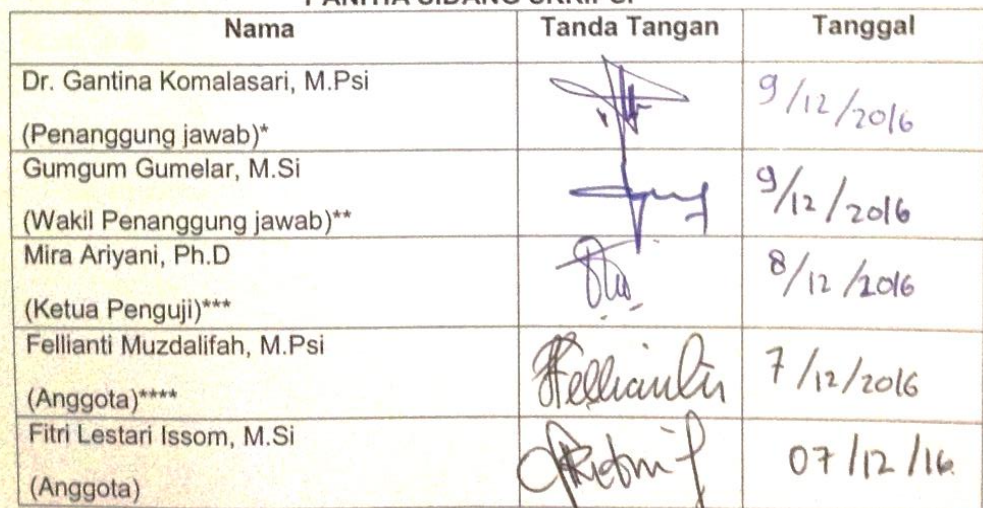 PANITIA SIDANG SKRIPSI
Nama Tanda Tangan Tanggal
Dr. Gantina Komalasari, M.Psi
(Penanggung jawab)* 9/12/2016
Gumgum Gumelar, M.Si
(Wakil Penanggung jawab)** 9/12/2016
Mira Ariyani, Ph.D
(Ketua Penguji)*** 8/12/2016
Fellianti Muzdalifah, M.Psi
(Anggota)**** Fellianti 7/12/2016
Fitri Lestari Issom, M.Si
(Anggota) 07/12/16